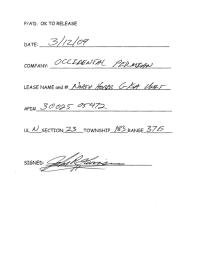 P/A'D. OK TO RELEASE
DATE: 3/12/09
COMPANY: OCCIDENTAL PERMIAN
LEASE NAME and #. NORTH HOBBS G-SA UNIT
API# 30025 05472
UL N SECTION 23 TOWNSHIP 18S RANGE 37E
SIGNED: